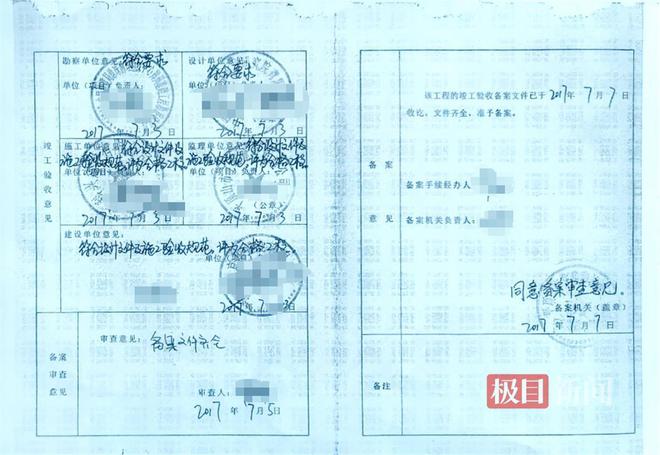 竣工验收意见
勘察单位意见：
符合要求
单位（项目）负责人：
2017年7月3日
设计单位意见：
符合要求
单位（项目）
2017年7月3日
施工单位意见：
符合设计文件及施工验收规范，评为合格工程。
单位（项目）
2017年7月3日
监理单位意见：
符合设计文件及施工验收规范，评为合格工程。
单位（项目）
（公章）
2017年7月3日
建设单位意见：
符合设计文件及施工验收规范，评为合格工程。
单位（项目）
2017年7月3日
备案审查意见
审查意见：
备案文件齐全
审查人：
2017年7月5日
备案意见
该工程的竣工验收备案文件已于2017年7月7日
收讫，文件齐全，准予备案。
备案手续经办人：
备案机关负责人：
同意备案审查意见。
备案机关（盖章）
2017年7月7日
备注
极目新闻